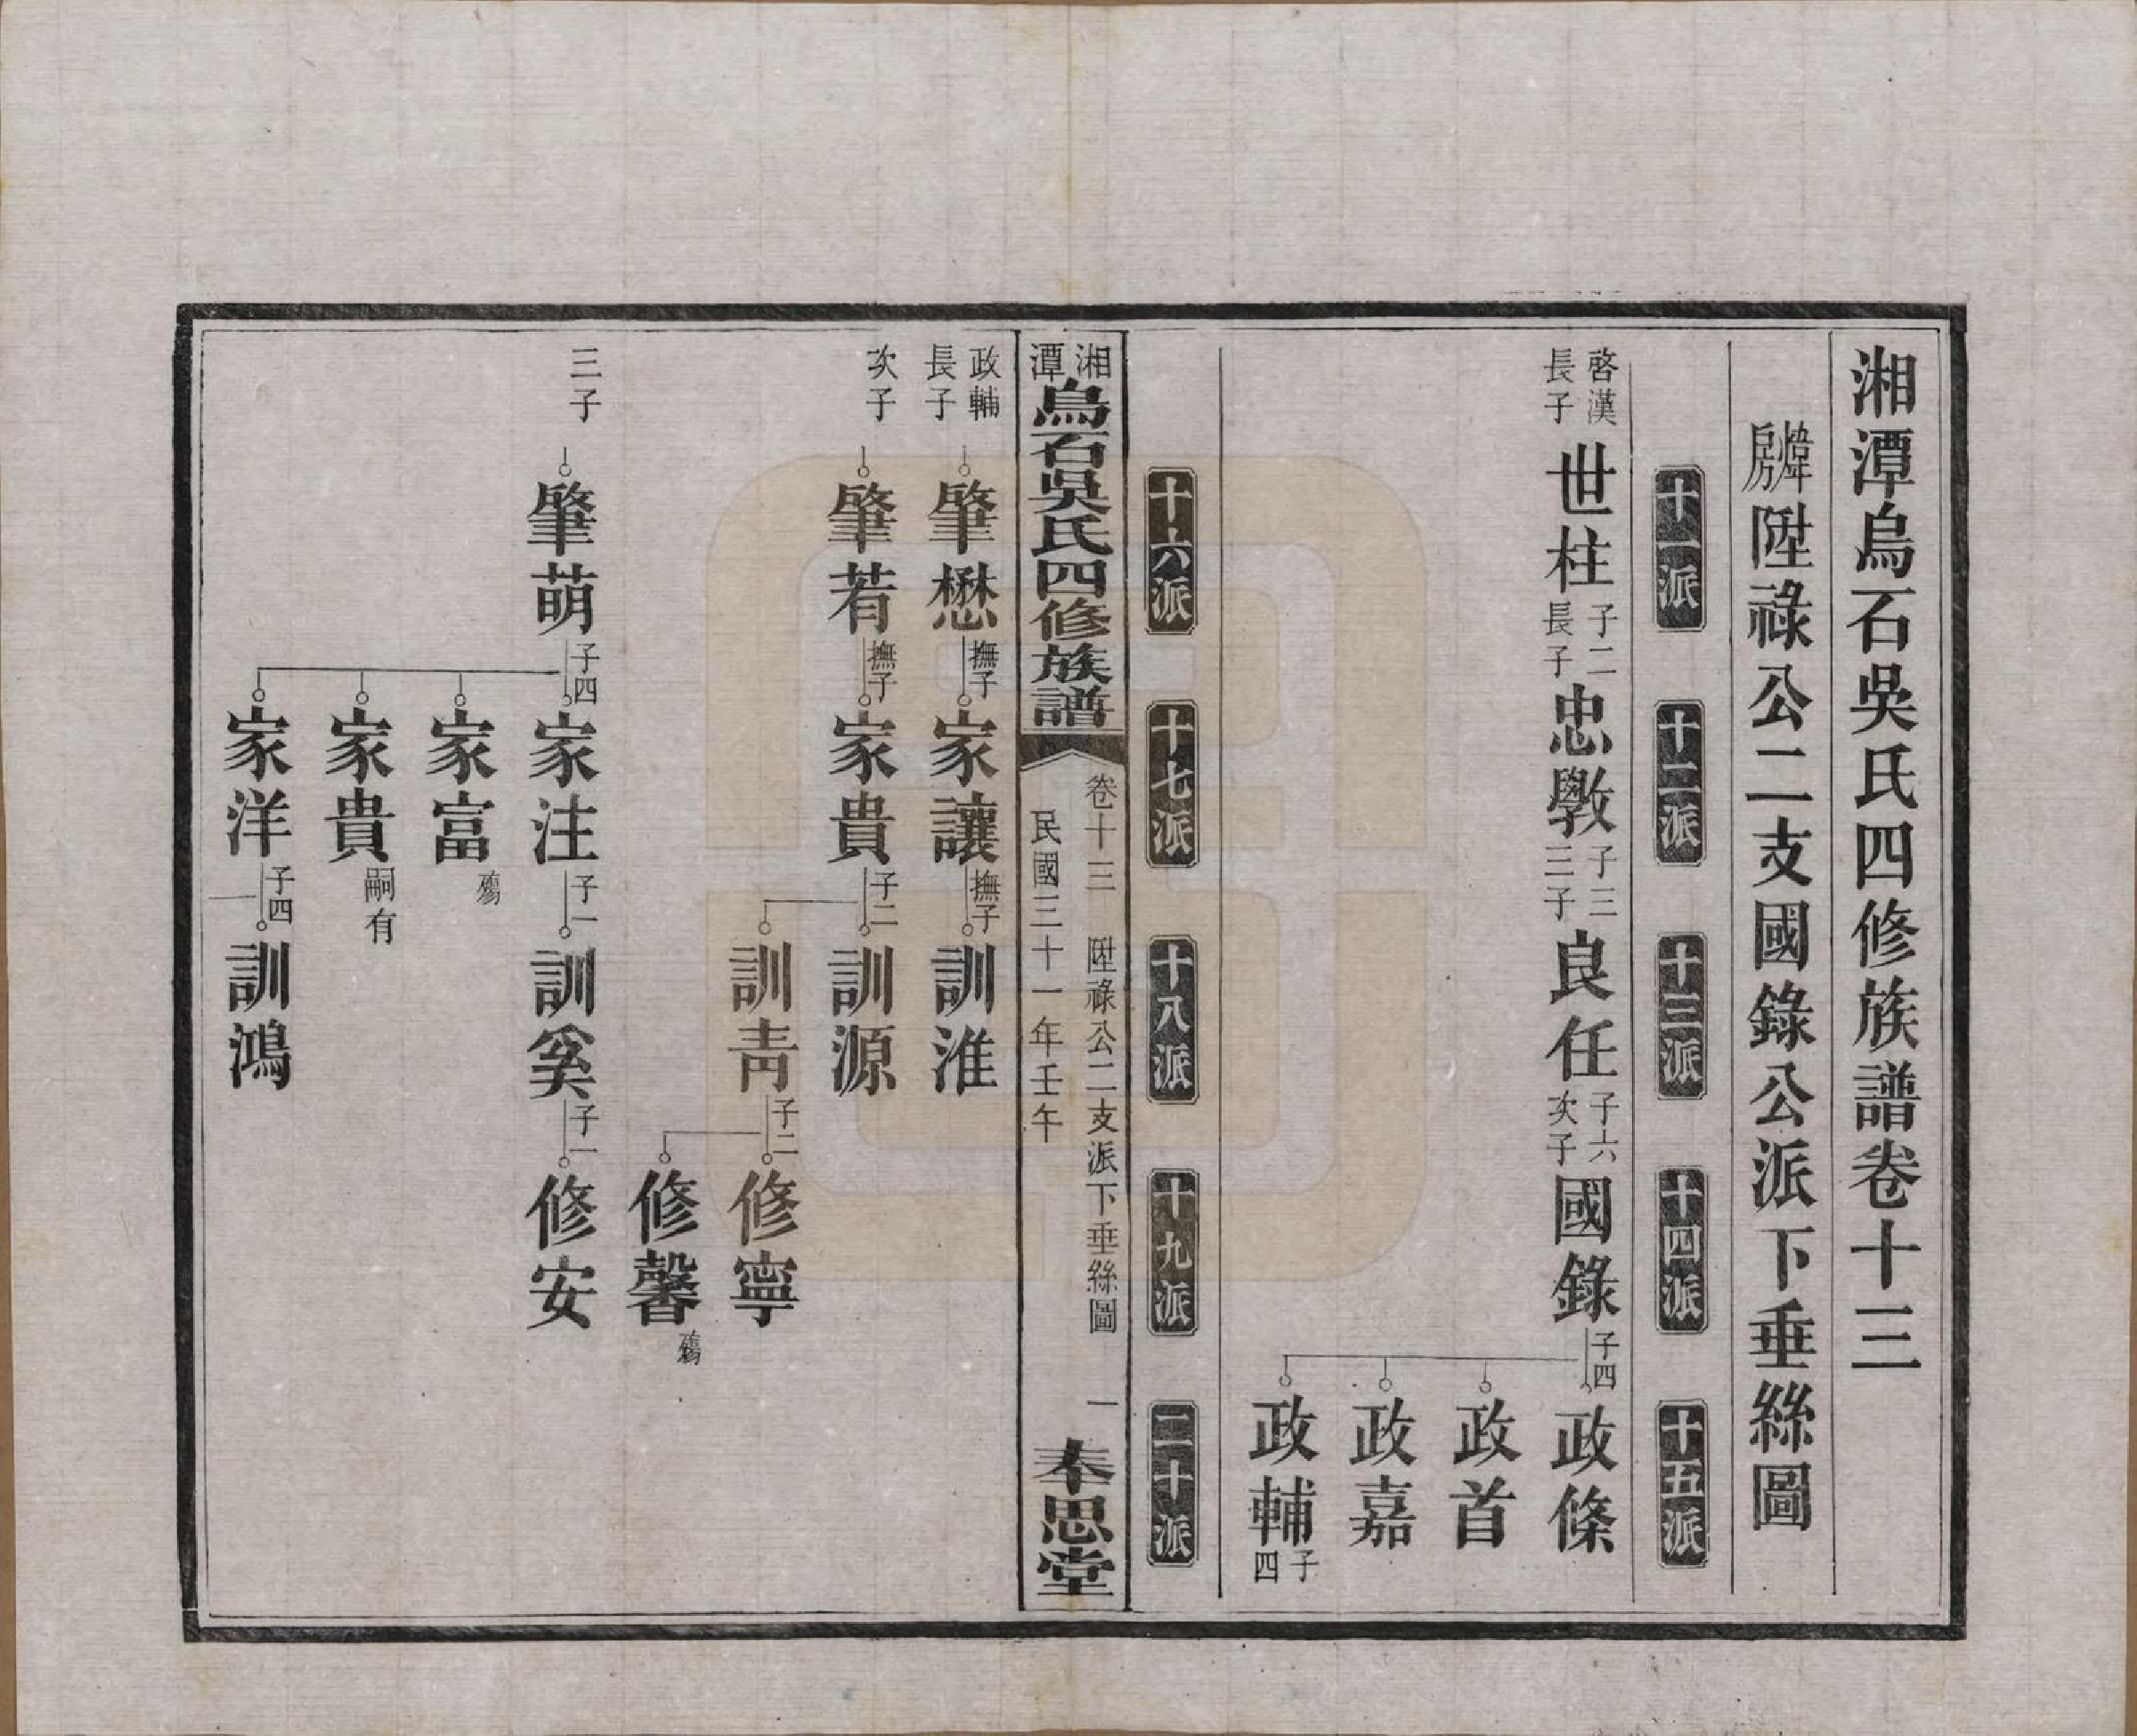 湘潭烏石吳氏四修族譜卷十三
煒房陞祿公二支國錄公派下垂絲圖
十一派 十二派 十三派 十四派 十五派
啓漢長子 世柱 子二長子 忠斆 子三三子 良任 子六次子 國錄 子四 政條
政首
政嘉
政輔 子四
十六派 十七派 十八派 十九派 二十派
湘潭烏石吳氏四修族譜 卷十三 陞祿公二支派下垂絲圖 一
民國三十一年壬午 奉思堂
政輔長子 肇懋 撫子 家讓 撫子 訓淮
次子 肇若 撫子 家貴 子二 訓源
訓青 子二 修寧
修馨 殤
三子 肇萌 子四 家注 子一 訓奚 子一 修安
家富 殤
家貴 嗣有
家洋 子四 訓鴻